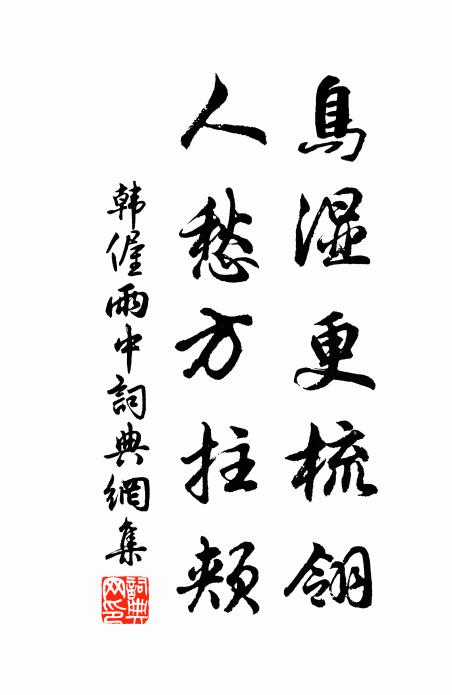 鳥湿更梳翎
人愁方拄頰
韩偓雨中詞典網集
詞典网印